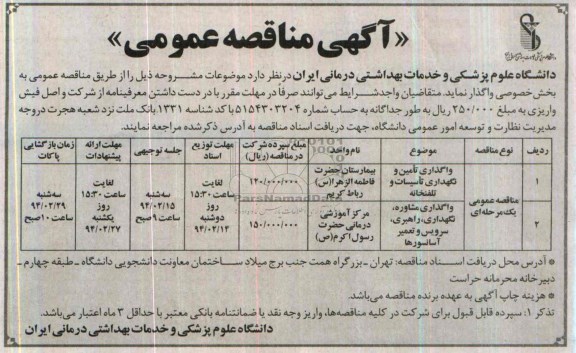 «آگهی مناقصه عمومی»
دانشگاه علوم پزشکی و خدمات بهداشتی درمانی ایران در نظر دارد موضوعات مشروحه ذیل را از طریق مناقصه عمومی به
بخش خصوصی واگذار نماید. متقاضیان واجد شرایط می توانند صرفاً در مهلت مقرر با در دست داشتن معرفینامه از شرکت و اصل فیش
واریزی به مبلغ ۲۵۰/۰۰۰ ریال به طور جداگانه به حساب شماره ۵۱۵۴۳۰۳۲۰۴ با کد شناسه ۱۳۲۱ بانک ملت نزد شعبه هجرت در وجه
مدیریت نظارت و توسعه امور عمومی دانشگاه، جهت دریافت اسناد مناقصه به آدرس ذکر شده مراجعه نمایند.
ردیف | نوع مناقصه | موضوع | نام واحد | مبلغ سپرده شرکت در مناقصه (ریال) | مهلت توزیع اسناد | جلسه توجیهی | مهلت ارائه پیشنهادات | زمان بازگشایی پاکات
۱ | مناقصه عمومی یک مرحله ای | واگذاری تأمین و نگهداری تأسیسات و تلفنخانه | بیمارستان حضرت فاطمه الزهرا(س) رباط کریم | ۱۴۰/۰۰۰/۰۰۰ | لغایت ساعت ۱۵:۳۰ روز دوشنبه ۹۴/۰۲/۱۴ | سه شنبه ۹۴/۰۲/۱۵ ساعت ۹ صبح | لغایت ساعت ۱۵:۳۰ روز یکشنبه ۹۴/۰۲/۲۷ | سه شنبه ۹۴/۰۲/۲۹ ساعت ۱۰ صبح
۲ | واگذاری مشاوره، نگهداری، راهبری، سرویس و تعمیر آسانسورها | مرکز آموزشی درمانی حضرت رسول اکرم(ص) | ۱۵۰/۰۰۰/۰۰۰
ParsNamadData
* آدرس محل دریافت اسناد مناقصه: تهران ـ بزرگراه همت جنب برج میلاد ساختمان معاونت دانشجویی دانشگاه ـ طبقه چهارم ـ
دبیرخانه محرمانه حراست
* هزینه چاپ آگهی به عهده برنده مناقصه می باشد.
تذکر ۱: سپرده قابل قبول برای شرکت در کلیه مناقصه ها، واریز وجه نقد یا ضمانتنامه بانکی معتبر با حداقل ۳ ماه اعتبار می باشد.
دانشگاه علوم پزشکی و خدمات بهداشتی درمانی ایران